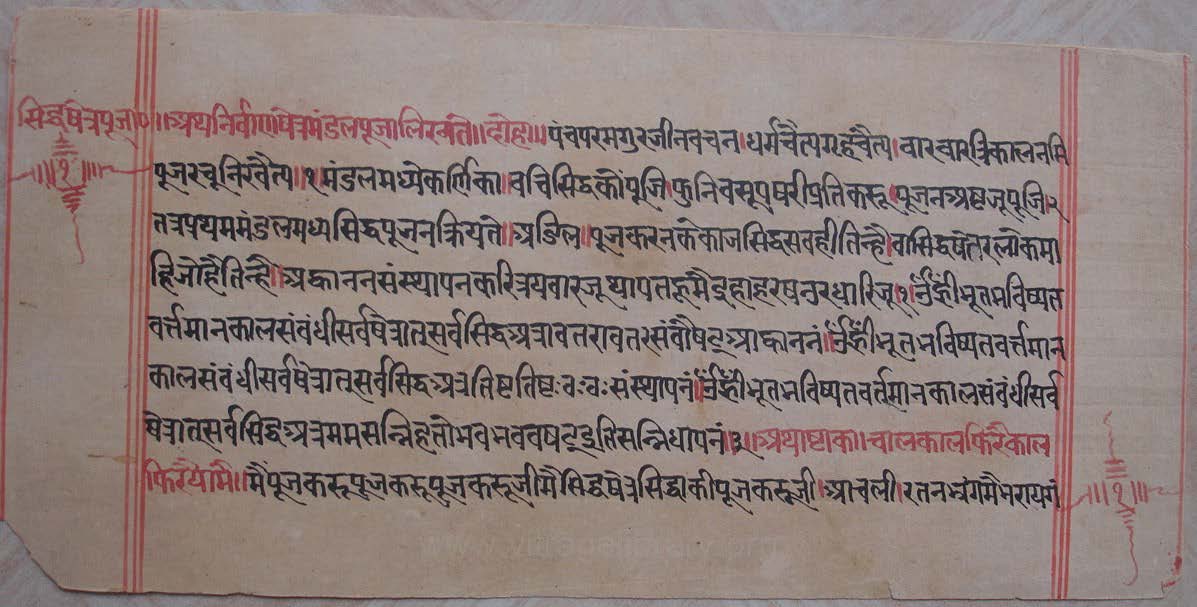 सिद्धषेत्रपूजा॥
॥अथनिर्वाणषेत्रमंडलपूजालिख्यते॥दोहा॥पंचपरमगुरजीनवचन।धर्मचैत्यगृहचैत्य।वारवारत्रिकालनमि
पूजरचूनिरवैत्य॥१मंडलमध्येकर्णिका।वचिसिद्धकौंपूजि।फुनिवसूप्रषरीप्रतिकरू।पूजनअष्टजूपूजि।२
तत्रप्रथममंडलमध्यसिद्धपूजनक्रियते॥अडिल॥पूजकरनकेकाजसिद्धसवहीतिन्है।वासिद्धषेतरलोकमा
हिजोहैतिन्है॥अह्वाननसंस्थापनकरित्रयवारजूथापतहूमैइहाहरष धारिजू।१।ॐह्रीभूतभविष्यत
वर्त्तमानकालसंवंधीसर्वषेत्रातसर्वसिद्धअत्रावतरावतरसंवौषट्आह्वाननं।ॐह्रीभूतभविष्यतवर्त्तमान
कालसंवंधीसर्वषेत्रातसर्वसिद्धअत्रतिष्टतिष्टःठःठःसंस्थापनं।ॐह्रीभूतभविष्यतवर्तमानकालसंवंधीसर्व
षेत्रातसर्वसिद्धअत्रममसन्निहतोभवभववषट्इतिसन्निधापनं।३॥अथाष्टाक।चालकालफिरैकाल
फिरैयामै॥मैंपूजकरूपूजकरूपूजकरूजीमैसिद्धषेत्रसिद्धाकीपूजकरूजी।आचली।रतन
॥१॥
॥१॥